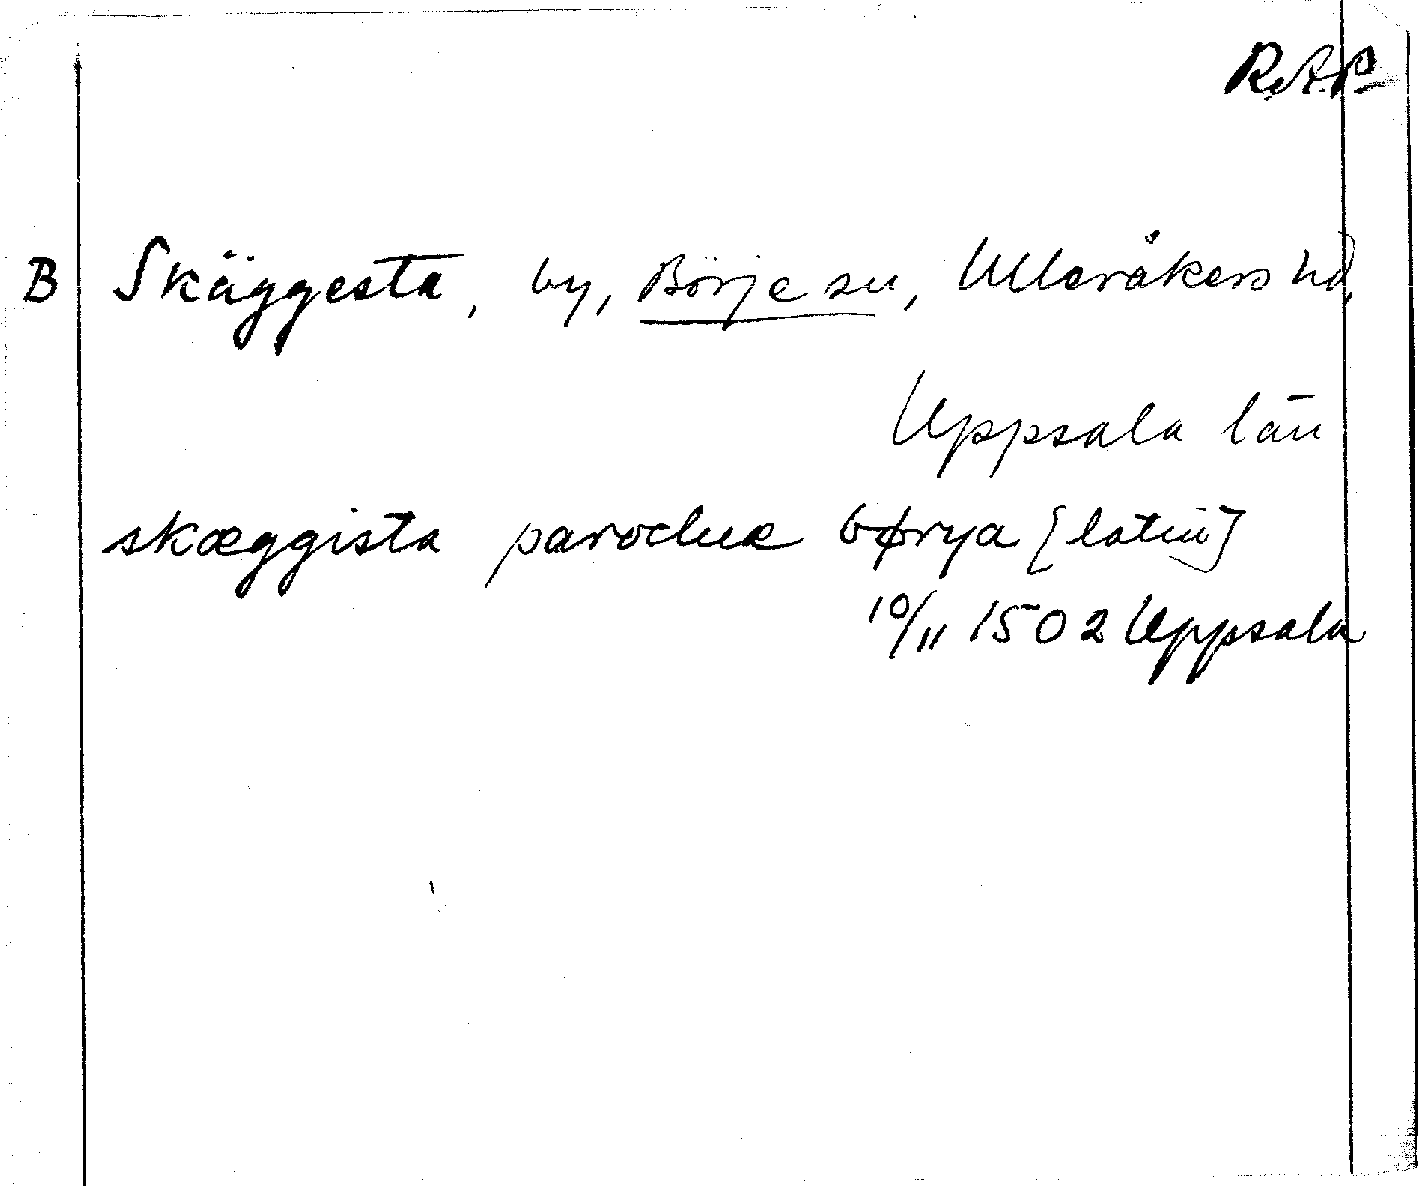 RAP
B Skäggesta, by, Börje sn, Ulleråkers hd,
Uppsala län
skæggista parochie børya [latin]
10/11 1502 Uppsala